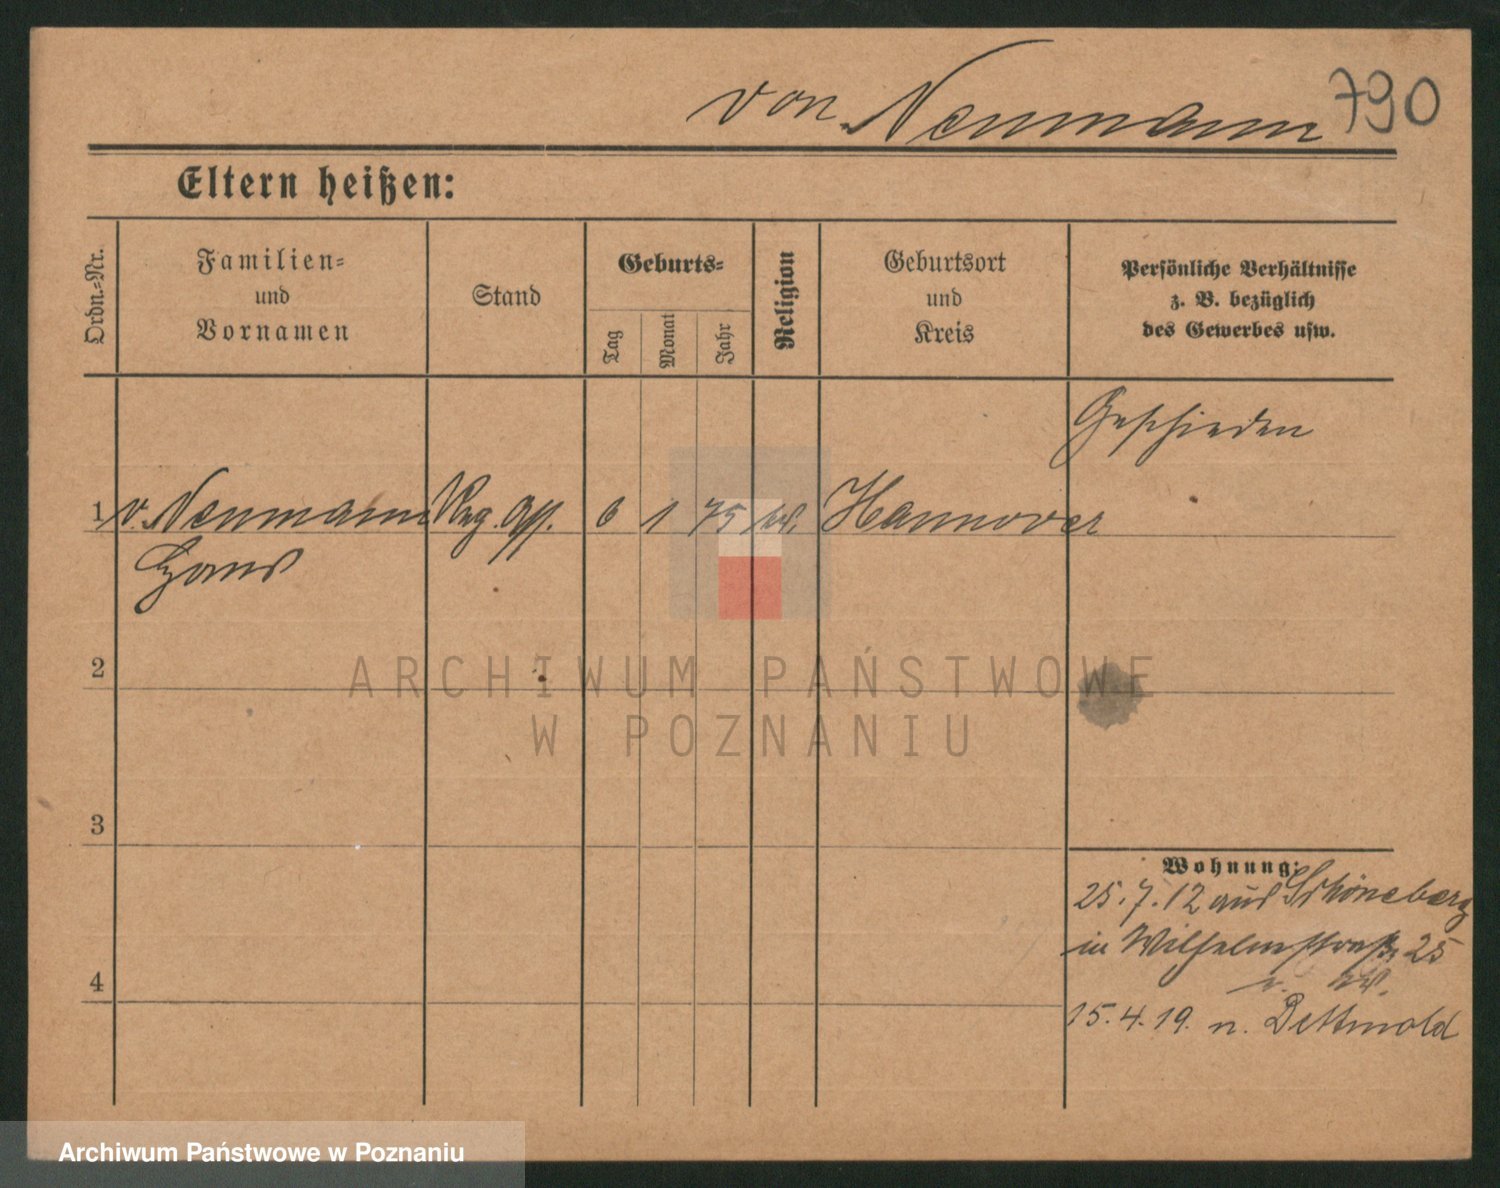 von Neumann 790
Eltern heißen:
Ordn.-Nr.
Familien-
und
Vornamen
Stand
Geburts-
Tag
Monat
Jahr
Religion
Geburtsort
und
Kreis
Persönliche Verhältnisse
z. B. bezüglich
des Gewerbes usw.
Geschieden
1 v. Neumann Reg. Ass. 6 1 75 ev. Hannover
Hans
2
3
4
Wohnung:
25.7.12 aus Schöneberg
in Wilhelmstraße 25
15.4.19. n. Dettmold
ARCHIWUM PAŃSTWOWE
W POZNANIU
Archiwum Państwowe w Poznaniu